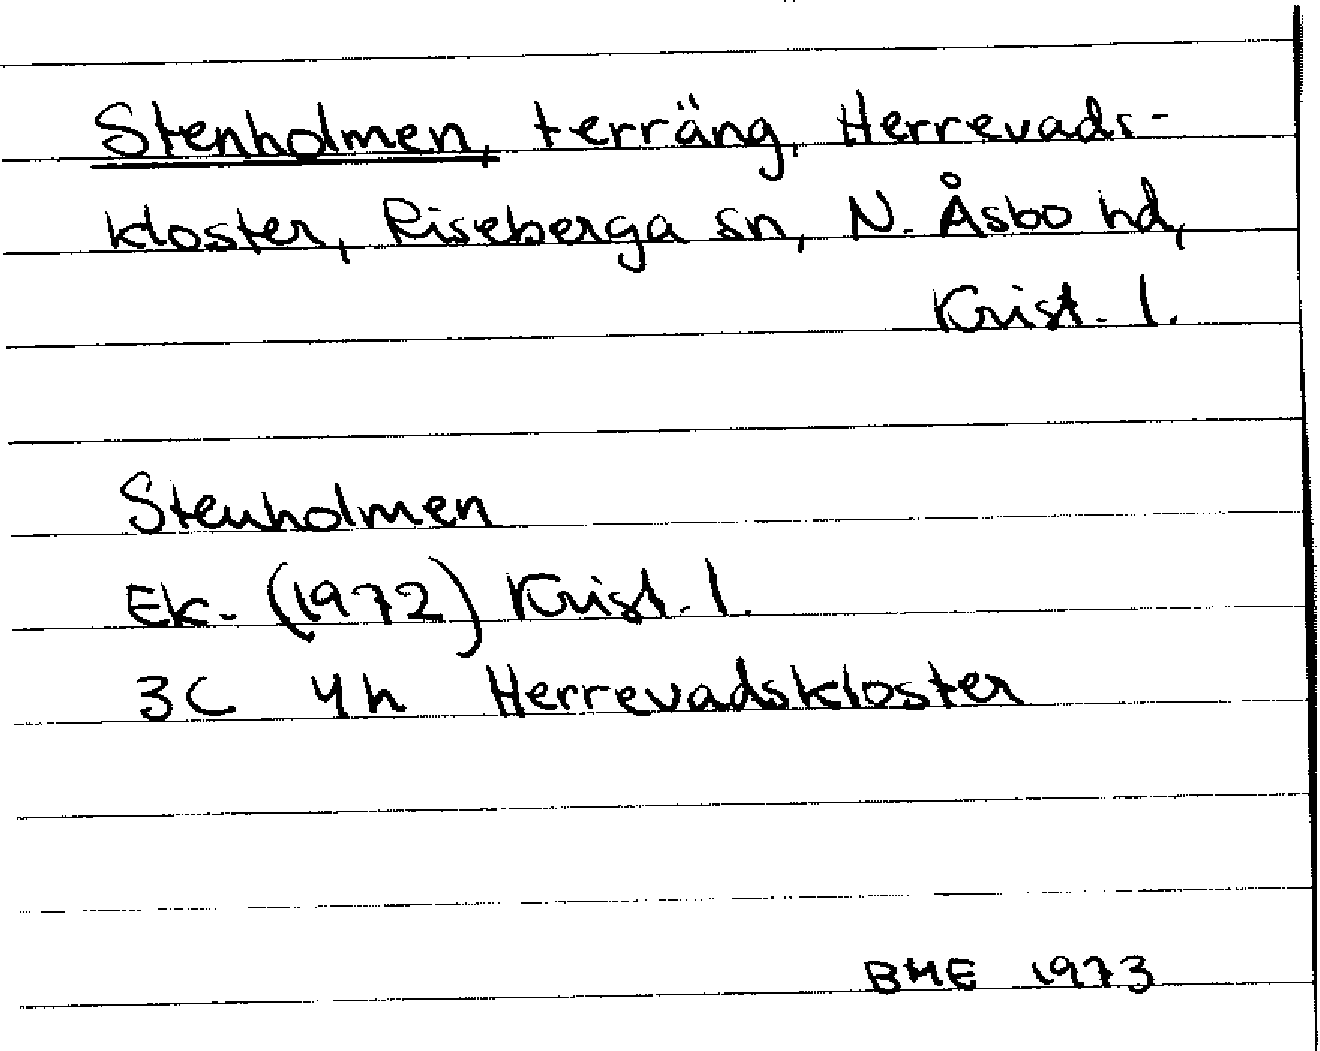 Stenholmen, terräng, Herrevads-
kloster, Riseberga sn, N. Åsbo hd,
Krist. l.
Stenholmen
Ek. (1972) Krist. l.
3C 4h Herrevadskloster
BME 1973